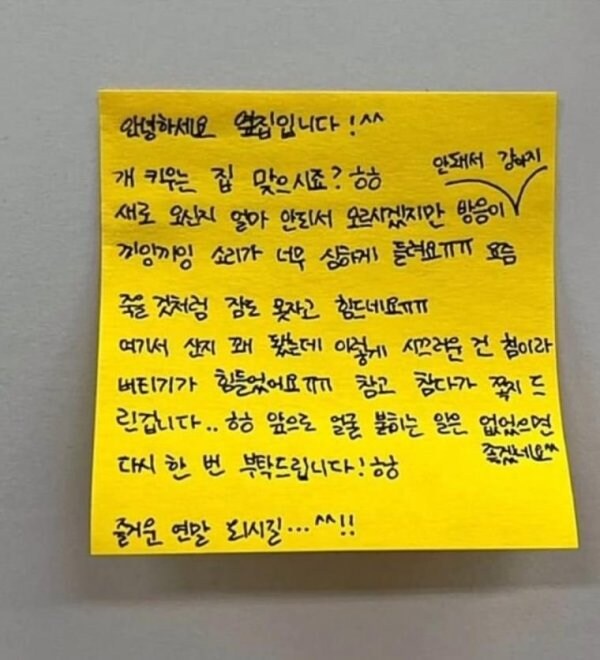 안녕하세요 옆집입니다!^^
개 키우는 집 맞으시죠? ㅎㅎ
새로 오신지 얼마 안되서 모르시겠지만 방음이 안돼서 강아지
끼잉끼잉 소리가 너무 심하게 들려요ㅠㅠ 요즘
죽을 것처럼 잠도 못자고 힘드네요ㅠㅠ
여기서 산지 꽤 됐는데 이렇게 시끄러운 건 첨이라
버티기가 힘들었어요ㅠㅠ 참고 참다가 쪽지 드
린겁니다.. ㅎㅎ 앞으로 얼굴 붉히는 일은 없었으면
좋겠네요^^
다시 한 번 부탁드립니다!ㅎㅎ
즐거운 연말 되시길...^^!!